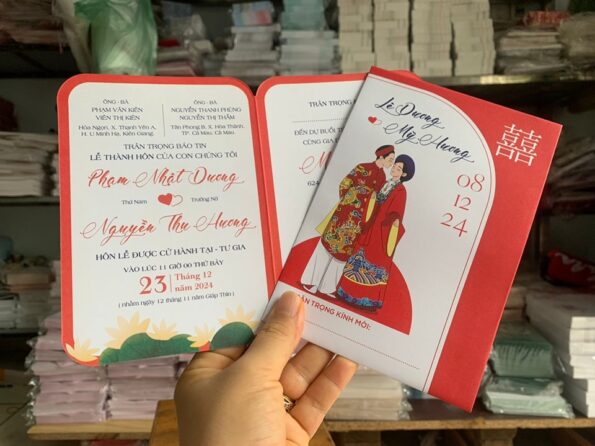 ÔNG - BÀ
PHẠM VĂN KIÊN
VIÊN THỊ KIÊN
Hòa Ngọn, X. Thạnh Yên A,
H. U Minh Hạ, Kiên Giang.
ÔNG - BÀ
NGUYỄN THANH PHÙNG
NGUYỄN THỊ THẮM
Tân Phong B, X. Hòa Thành,
TP. Cà Mau, Cà Mau
TRÂN TRỌNG BÁO TIN
LỄ THÀNH HÔN CỦA CON CHÚNG TÔI
Phạm Nhật Dương
Thứ Nam
Trưởng Nữ
Nguyễn Thu Hương
HÔN LỄ ĐƯỢC CỬ HÀNH TẠI - TƯ GIA
VÀO LÚC 11 GIỜ 00 THỨ BẢY
23 Tháng 12
năm 2024
( nhằm ngày 12 tháng 11 năm Giáp Thìn )
TRÂN TRỌNG
ĐẾN DỰ BUỔI
CÙNG GIA
624
Lê Dương
Mỹ Hương
囍
08
12
24
TRÂN TRỌNG KÍNH MỜI: